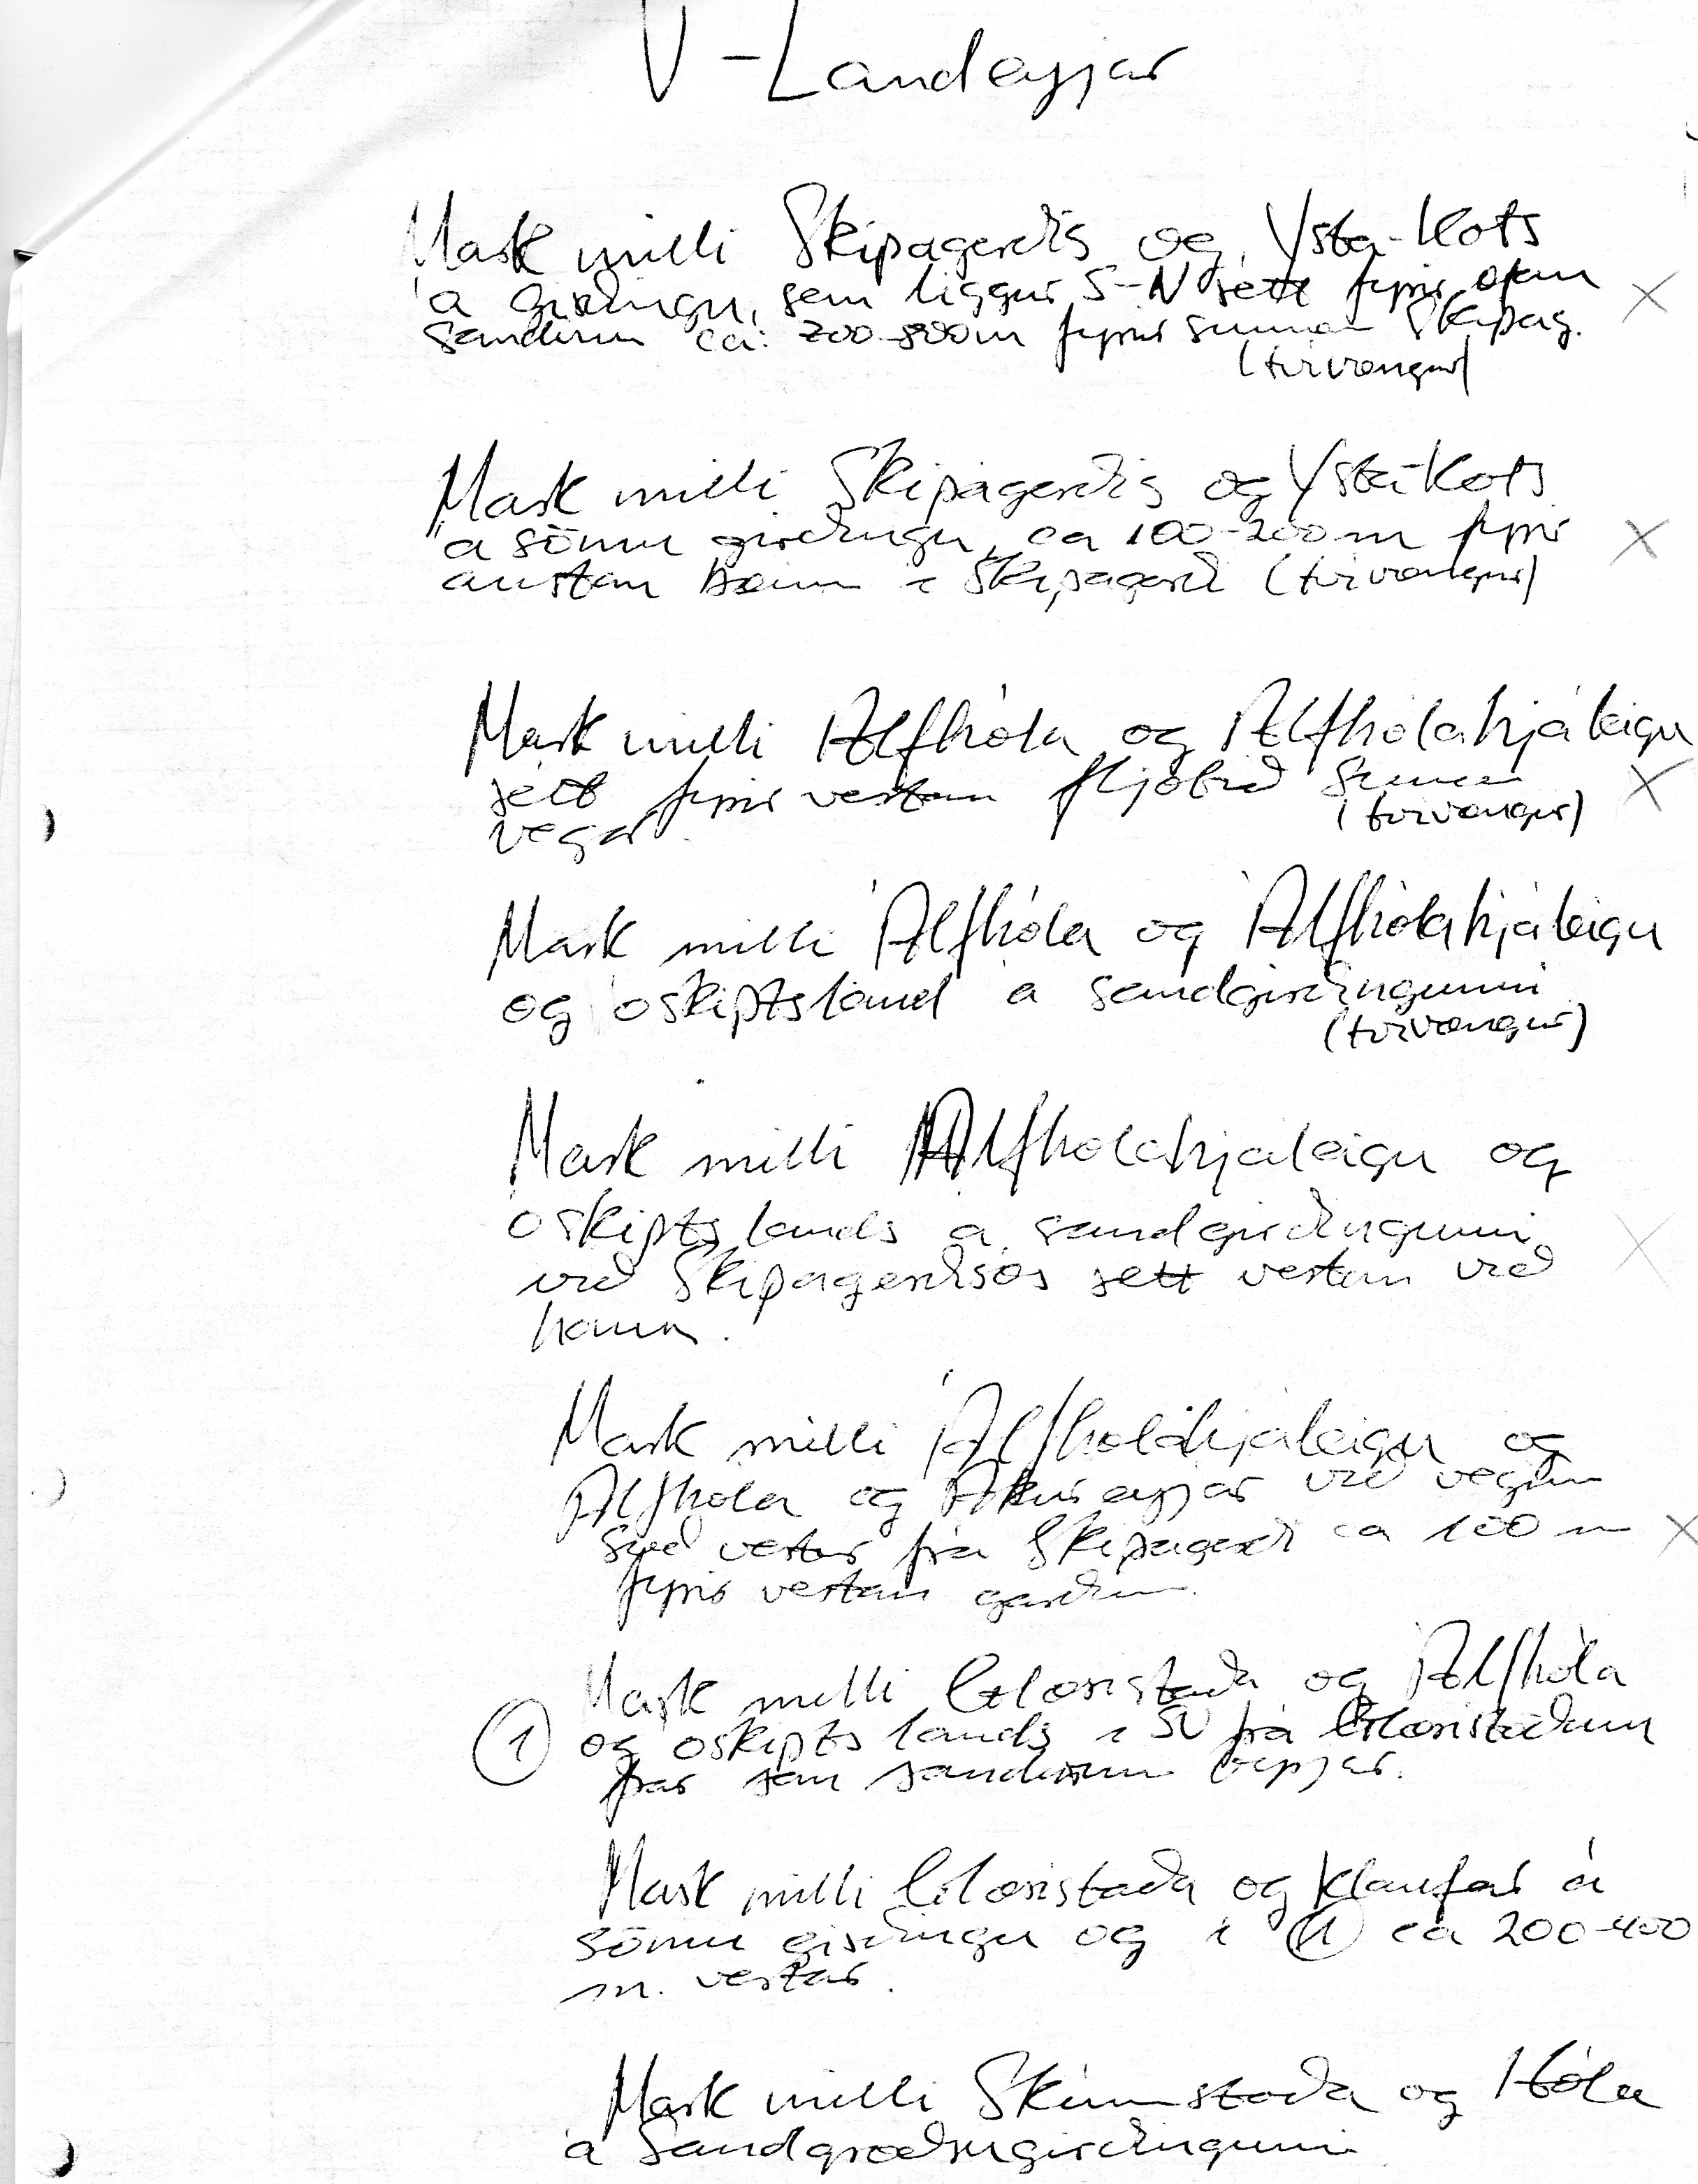 V-Landeyjar
Mark milli Skipagerðis og Ysta-Kots
á girðingu, sem liggur S-N rétt fyrir ofan
sandinn ca: 700-800m fyrir sunnan Skipag.
(tvívængur)
Mark milli Skipagerðis og Ysta-Kots
á sömu girðingu, ca 100-200 m fyrir
austan bæinn í Skipagerði (tvívængur)
Mark milli Álfhóla og Álfhólahjáleigu
rétt fyrir vestan fljótið sunnan
vegar.
(tvívængur)
Mark milli Álfhóla og Álfhólahjáleigu
og óskiptsland á sandgirðingunni
(tvívængur)
Mark milli Álfhólahjáleigu og
óskipts lands á sandgirðingunni
við Skipagerðisós rétt vestan við
hann.
Mark milli Álfhólahjáleigu og
Álfhóla og Akureyjar við veginn
suð vestur frá Skipagerði ca 100 m
fyrir vestan garðinn.
Mark milli Glæristaða og Álfhóla
① og óskipts lands í SV frá Glæristöðum
þar sem sandurinn byrjar.
Mark milli Glæristaða og Klaufar á
sömu girðingu og í ① ca 200-400
m. vestar.
Mark milli Skúmstaða og Hóla
á Sandgræðslugirðingunni